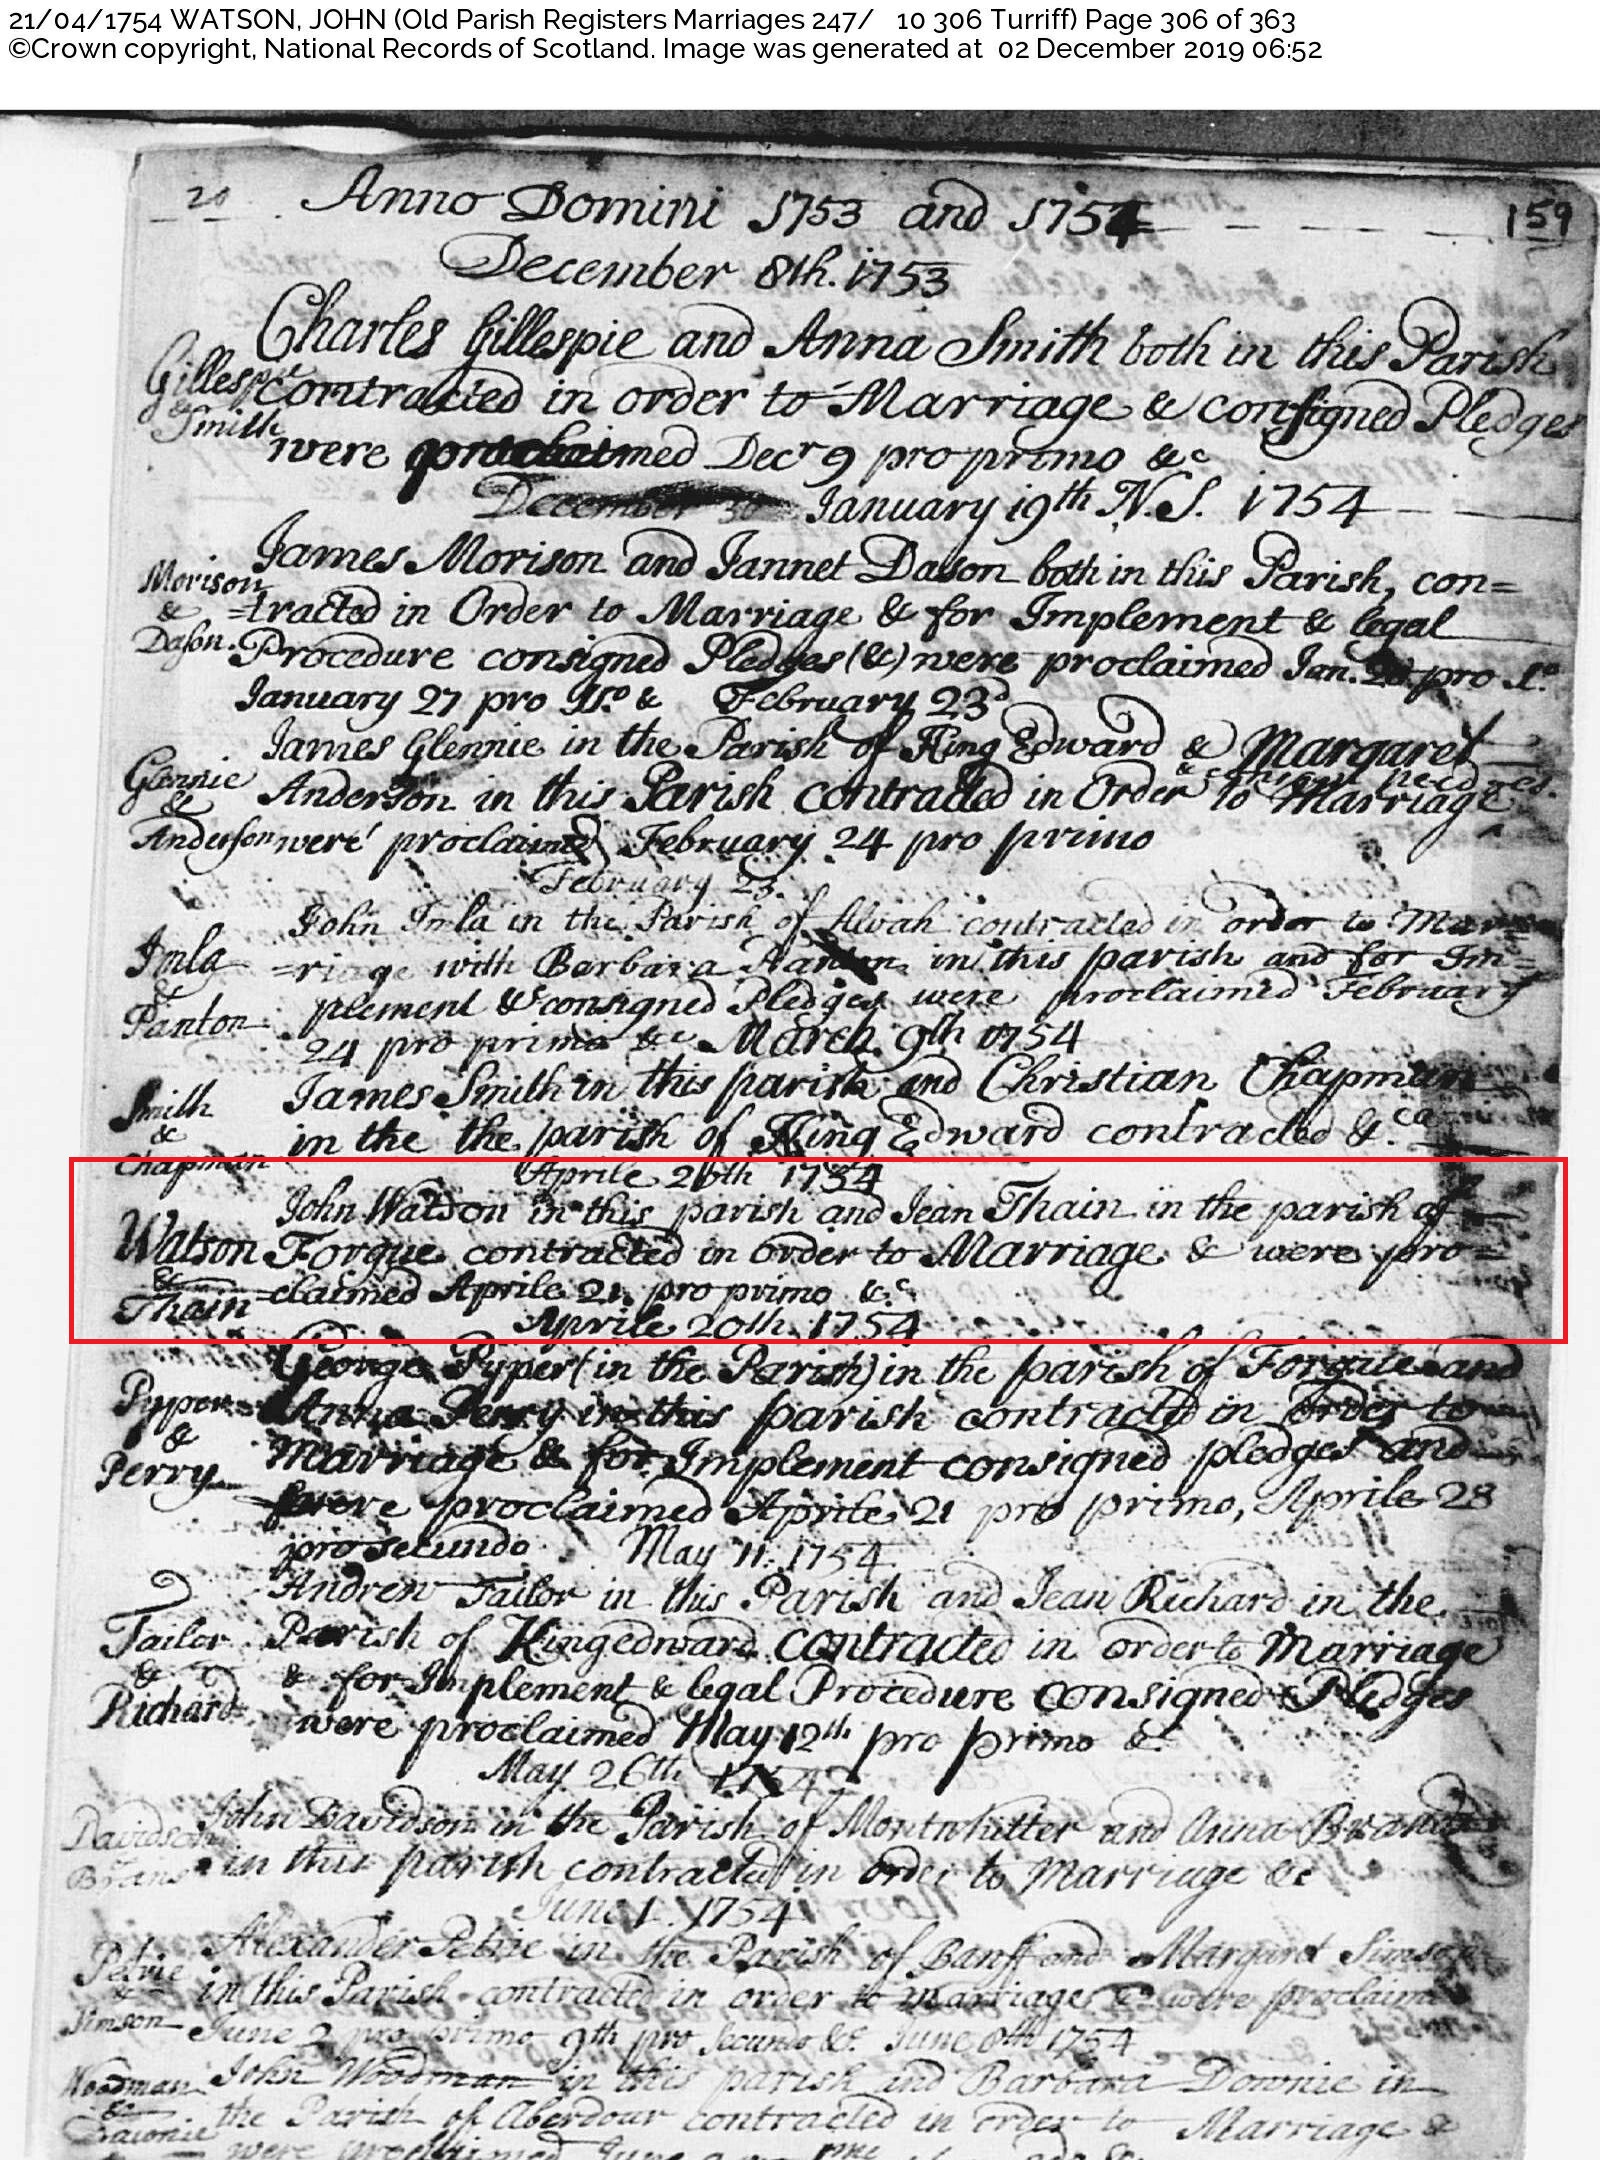 21/04/1754 WATSON, JOHN (Old Parish Registers Marriages 247/ 10 306 Turriff) Page 306 of 363
©Crown copyright, National Records of Scotland. Image was generated at 02 December 2019 06:52
20 Anno Domini 1753 and 1754 159
December 8th. 1753
Charles Gillespie and Anna Smith both in this Parish
Gillespie contracted in order to Marriage & consigned Pledges
& Smith were proclaimed Decr 9 pro primo &c
December 30 January 19th N.S. 1754
James Morison and Jannet Dason both in this Parish, con=
Morison & =tracted in Order to Marriage & for Implement & legal
Dason. Procedure consigned Pledges (&) were proclaimed Jan. pro 1.o
January 27 pro II.o & February 23d
James Glennie in the Parish of King Edward & Margaret
& consigned
Glennie & Anderson in this Parish contracted in Order to Marriage
Anderson were proclaimed February 24 pro primo
February 23.
John Imla in the Parish of Alvah contracted in order to Mar=
Imla =riage with Barbara in this parish and for Im=
& Panton plement &c consigned Pledges were proclaimed February
24 pro primo &c March 9th 1754
James Smith in this parish and Christian Chapman
Smith & in the the parish of King Edward contracted &.ca
Chapman Aprile 20th 1754
John Watson in this parish and Jean Thain in the parish of
Watson Forgue contracted in order to Marriage & were pro=
& Thain =claimed Aprile 21 pro primo &c
Aprile 20th. 1754
George Pyper (in the Parish) in the parish of Forgue and
Pyper & Anna Perry in this parish contracted in order to
Perry Marriage & for Implement consigned pledges and
were proclaimed Aprile 21 pro primo, Aprile 28
pro secundo May 11. 1754
Andrew Tailor in this Parish and Jean Richard in the
Tailor Parish of Kingedward contracted in order to Marriage
& Richard & for Implement & legal Procedure consigned Pledges
were proclaimed May 12th pro primo &
May 26th 1754
Davidson John Davidson in the Parish of Montwhitter and Anna
in this parish contracted in order to Marriage &c
June 1. 1754
Alexander Petrie in the Parish of Banff and Margaret Simson
Petrie & in this Parish contracted in order to marriage & were proclaim
Simson June 2 pro primo 9th pro secundo &c. June 8th 1754
Woodman John Woodman in this parish and Barbara Downie in
& Downie the Parish of Aberdour contracted in order to Marriage &
were proclaimed June